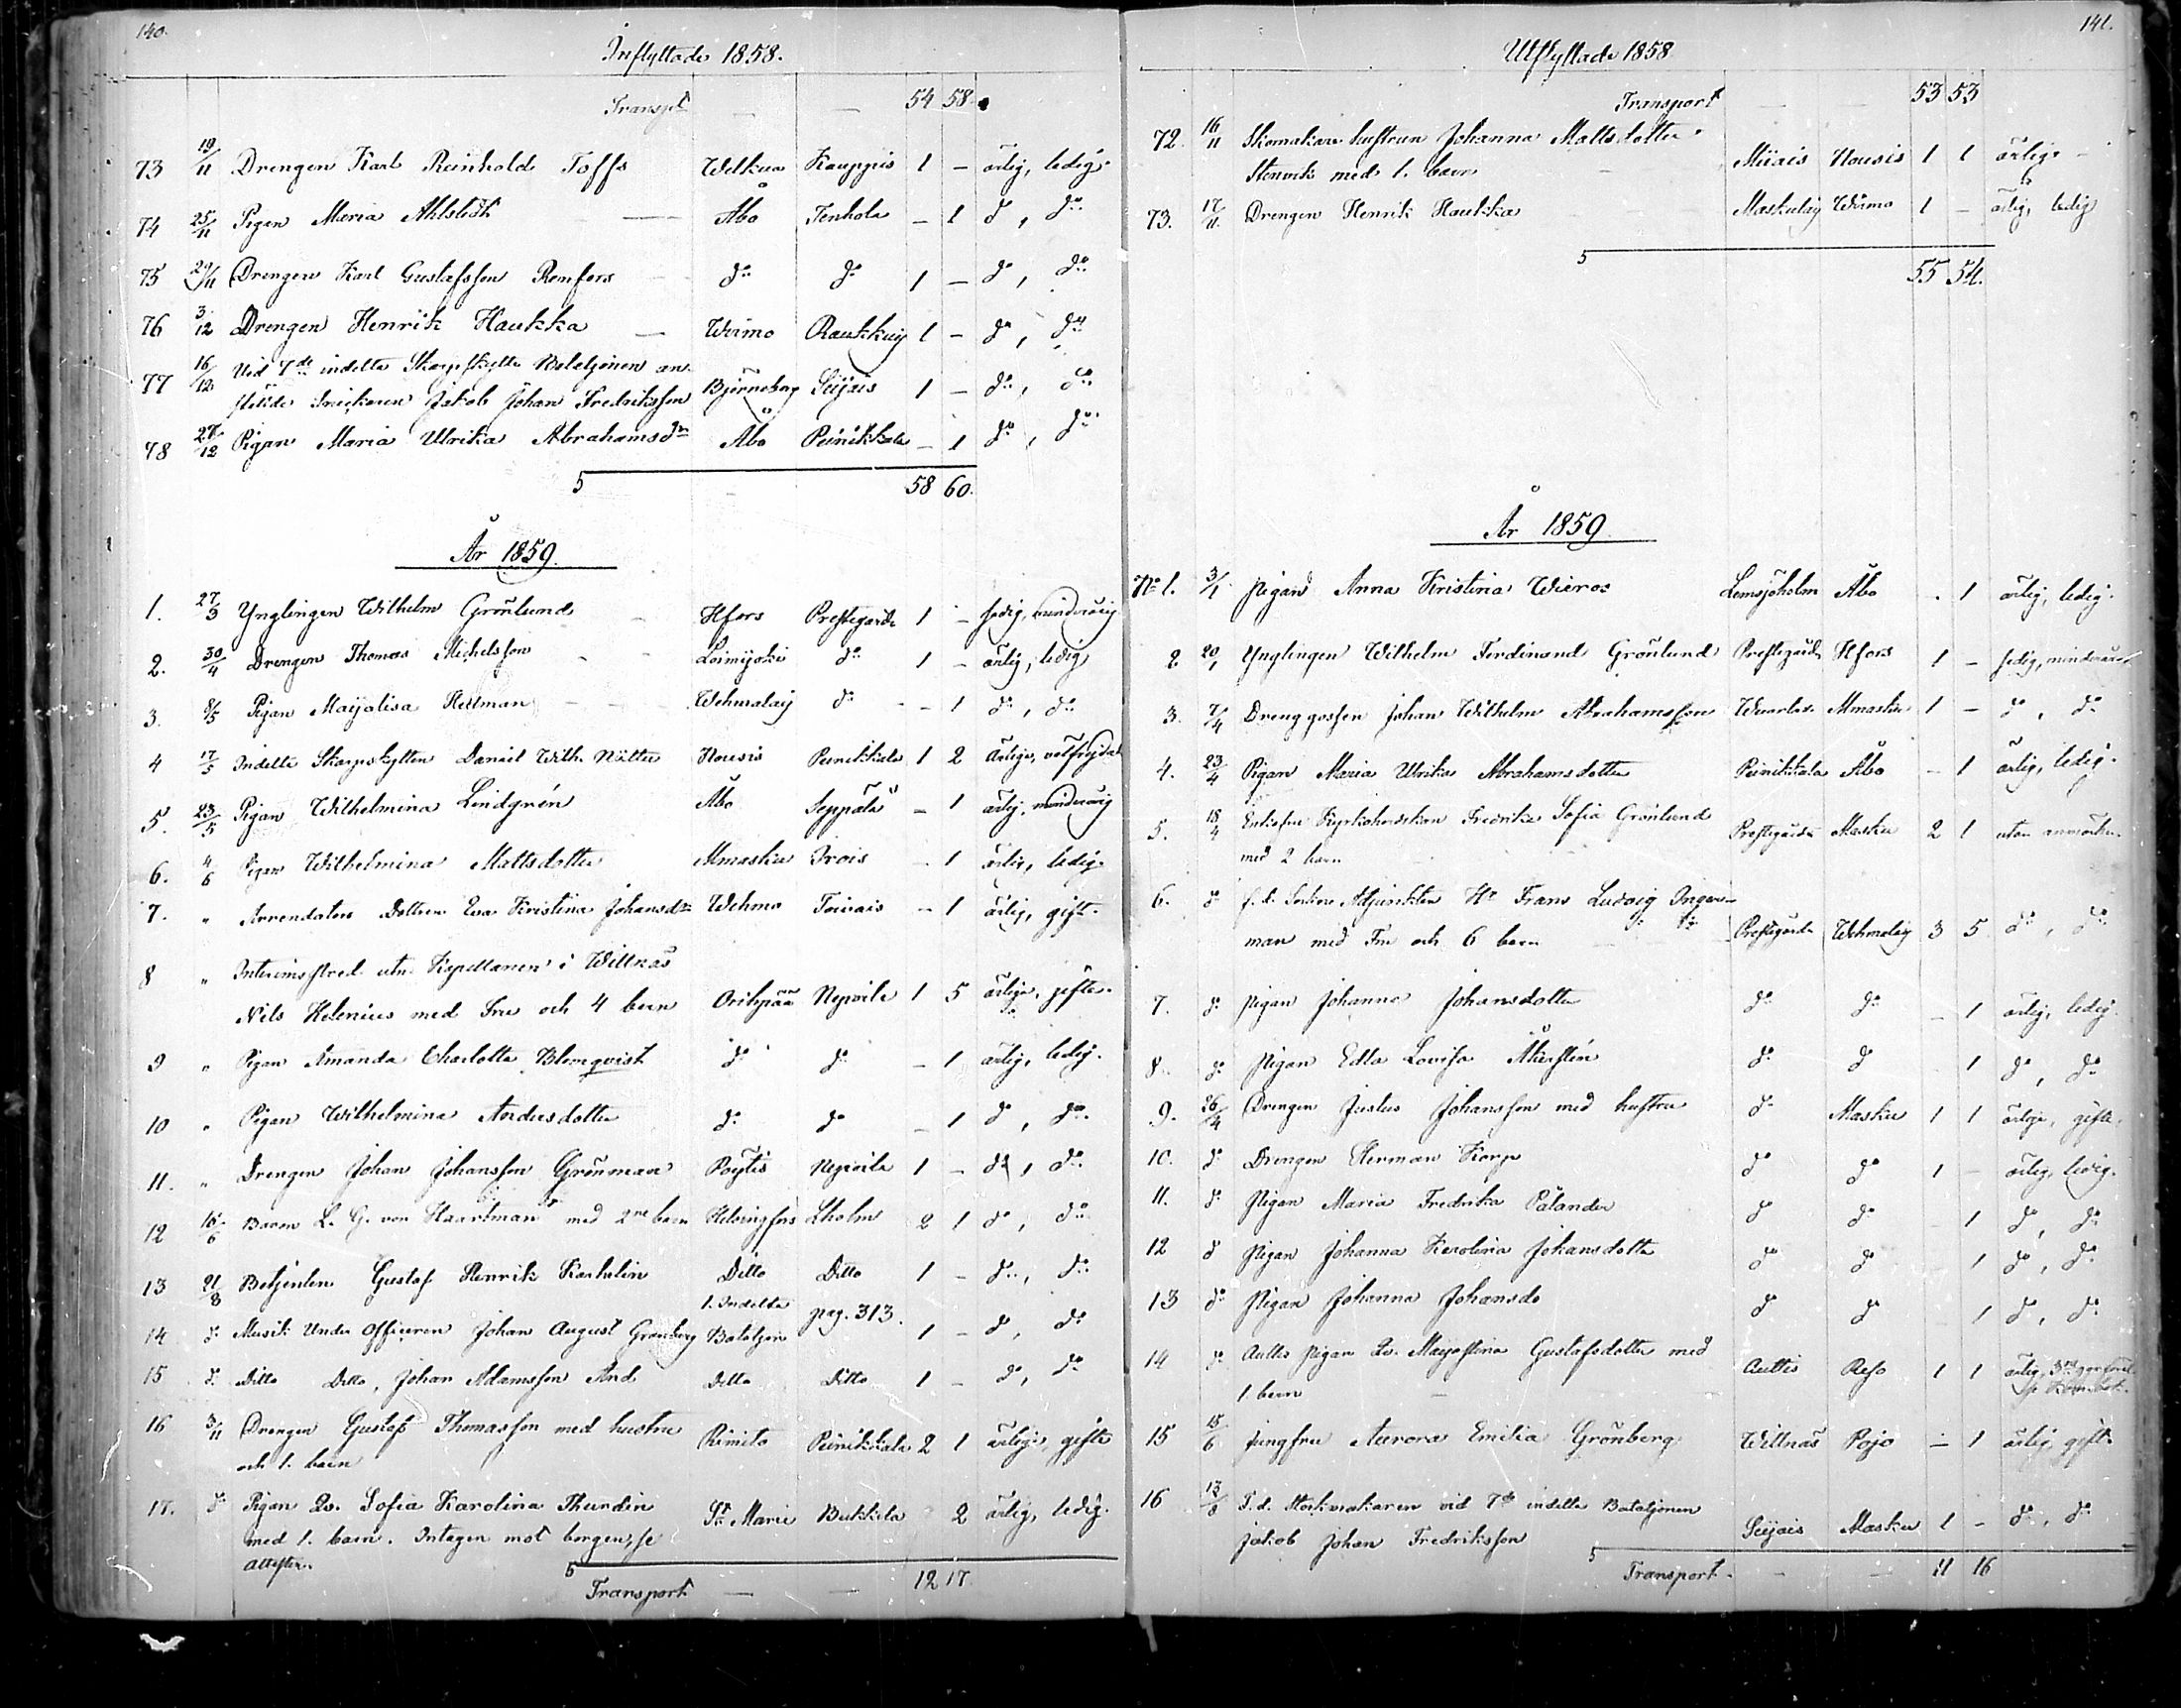 140.
Inflyttade 1858.
Transpt — — 54 58
73 19/11 Drengen Karl Reinhold Toffs Welkua Kauppis 1 – ärlig, ledig
74 25/11 Pigan Maria Ahlstedt — Åbo Tenhola – 1 do, do
75 29/11 Drengen Karl Gustafsson Romfors do do 1 – do, do
76 3/12 Drengen Henrik Haukka — Wirmo Raukkaig 1 – do, do
77 16/12 Vid 7de indelta Skarpskytte Bataljonen an-
stälde Snickaren Jakob Johan Fredriksson Björneborg Seijais 1 – do, do
78 27/12 Pigan Maria Ulrika Abrahamsdr Åbo Peinikkala – 1 do, do
5 58 60.
År 1859.
1. 27/3 Ynglingen Wilhelm Grönlund Hfors Prestegårde 1 – sedig, minderårig
2. 30/4 Drengen Thomas Michelsson Loimijoki do 1 – ärlig, ledig
3. 8/5 Pigan Maijalisa Hellman Wehmalaij do – 1 do, do
4 17/5 Indelte Skarpskytten Daniel Wilh. Nätter Nousis Peinikkala 1 2 ärlige, välfrejdad
5. 23/5 Pigan Wilhelmina Lindgrén Åbo Seppälä – 1 ärlig, minderårig
6. 4/6 Pigan Wilhelmina Mattsdotter Mmasku Irois – 1 ärlig, ledig
7. " Arrendators Dottren Eva Kristina Johansdr Wehmo Toivais – 1 ärlig, gift.
8 " Interimspred. utn. Kapellanen i Willnäs
Nils Helenius med Fru och 4 barn Orihpää Nepoila 1 5 ärlige, gifte.
9 " Pigan Amanda Charlotta Blomqvist do do – 1 ärlig, ledig.
10 " Pigan Wilhelmina Andersdotter do do – 1 do, do
11. " Drengen Johan Johansson Grönman Pöytis Nepoila 1 – do, do
12 16/6 Baron L. G. von Haartman med 2ne barn Helsingfors Lholm 2 1 do, do
13 21/8 Betjenten Gustaf Henrik Karhelin Ditto Ditto 1 – do, do
14 do Musik Under Officeren Johan August Grönberg 1. Indelta Bataljon pag. 313. 1 – do, do
15 do Ditto Ditto, Johan Adamsson And Ditto Ditto 1 – do, do
16 3/11 Drengen Gustaf Thomasson med hustru
och 1. barn Rimito Peinikkala 2 1 ärlige, gifte
17. do Pigan Qv. Sofia Karolina Thundin
med 1. barn. Intagen mot borgen, se St Marie Bukkila 2 ärlig, ledig.
attesten.
5 Transport — — 12 17.
141.
Utflyttade 1858
Transport — — 53 53
72. 16/11 Skomakare hustrun Johanna Mattsdotter
Stenvik med 1. barn Miiais Nousis 1 1 ärlige –
73. 17/11 Drengen Henrik Haukka Maskulaij Wirmo 1 – ärlig, ledig
5 55 54.
År 1859
No 1. 3/1 Pigan Anna Kristina Wieros Lemsjöholm Åbo . 1 ärlig, ledig.
2 20/1 Ynglingen Wilhelm Ferdinand Grönlund Prestegårde Hfors 1 – sedig, minderårig
3. 7/4 Drenggossen Johan Wilhelm Abrahamsson Wuorla Mmasku 1 – do, do
4. 23/4 Pigan Maria Ulrika Abrahamsdotter Peinikkala Åbo – 1 ärlig, ledig.
5. 18/4 Enkefru Kyrkoherdskan Fredrika Sofia Grönlund
med 2 barn Prestegårde Masku 2 1 utan anmärkn.
6. do f. d. Sockne Adjunkten Hr Frans Ludvig Inger-
man med Fru och 6 barn Prestegårde Wehmalaij 3 5 do, do
7. do Pigan Johanna Johansdotter do do – 1 ärlig, ledig
8. do Pigan Edla Lovisa Åkerstén do do 1 do, do
9. 26/4 Drengen Justus Johansson med hustru do Masku 1 1 ärlige, gifte.
10. do Drengen Herman Korp do do 1 – ärlig, ledig.
11. do Pigan Maria Fredrika Pälander do do 1 do, do
12 do Pigan Johanna Karolina Johansdotter do do 1 do, do
13 do Pigan Johanna Johansdo do do 1 do, do
14 do Auttis Pigan Qv. Maijastina Gustafsdotter med
1. barn — Auttis Reso 1 1 ärlig,
15 15/6 Jungfru Aurora Emilia Grönberg Willnäs Pojo – 1 ärlig, gift.
16 13/8 F. d. Stockmakaren vid 7de indelta Bataljonen
Jakob Johan Fredriksson Seijais Masku 1 – do, do
5 Transport – – 11 16